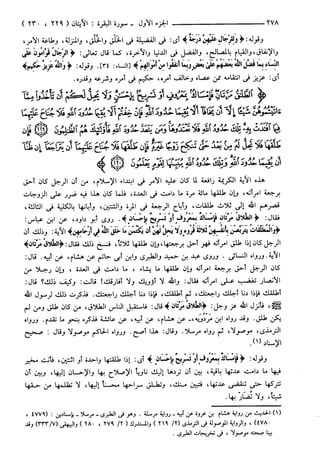 ٢٧٨ الجزء الأول - سورة البقرة : الآيتان ( ٢٢٩ ، ٢٣٠ )
وقوله : ﴿ وَلِلرِّجَالِ عَلَيْهِنَّ دَرَجَةٌ ﴾ أي : في الفضيلة في الخَلق والخُلق، والمنزلة، وطاعة الأمر،
والإنفاق، والقيام بالمصالح، والفضل في الدنيا والآخرة، كما قال تعالى : ﴿ الرِّجَالُ قَوَّامُونَ عَلَى
النِّسَاءِ بِمَا فَضَّلَ اللَّهُ بَعْضَهُمْ عَلَىٰ بَعْضٍ وَبِمَا أَنفَقُوا مِنْ أَمْوَالِهِمْ ﴾ [النساء: ٣٤]. وقوله: ﴿ وَاللَّهُ عَزِيزٌ حَكِيمٌ ﴾
أي : عزيز في انتقامه ممن عصاه وخالف أمره، حكيم في أمره وشرعه وقدره.
﴿ الطَّلَاقُ مَرَّتَانِ فَإِمْسَاكٌ بِمَعْرُوفٍ أَوْ تَسْرِيحٌ بِإِحْسَانٍ وَلَا يَحِلُّ لَكُمْ أَن تَأْخُذُوا مِمَّا
آتَيْتُمُوهُنَّ شَيْئًا إِلَّا أَن يَخَافَا أَلَّا يُقِيمَا حُدُودَ اللَّهِ فَإِنْ خِفْتُمْ أَلَّا يُقِيمَا حُدُودَ اللَّهِ فَلَا جُنَاحَ عَلَيْهِمَا
فِيمَا افْتَدَتْ بِهِ تِلْكَ حُدُودُ اللَّهِ فَلَا تَعْتَدُوهَا وَمَن يَتَعَدَّ حُدُودَ اللَّهِ فَأُولَٰئِكَ هُمُ الظَّالِمُونَ ﴿٢٢٩﴾ فَإِن
طَلَّقَهَا فَلَا تَحِلُّ لَهُ مِن بَعْدُ حَتَّىٰ تَنكِحَ زَوْجًا غَيْرَهُ فَإِن طَلَّقَهَا فَلَا جُنَاحَ عَلَيْهِمَا أَن يَتَرَاجَعَا إِن ظَنَّا
أَن يُقِيمَا حُدُودَ اللَّهِ وَتِلْكَ حُدُودُ اللَّهِ يُبَيِّنُهَا لِقَوْمٍ يَعْلَمُونَ ﴿٢٣٠﴾ ﴾
هذه الآية الكريمة رافعة لما كان عليه الأمر في ابتداء الإسلام، من أن الرجل كان أحق
برجعة امرأته، وإن طلقها مائة مرة ما دامت في العدة، فلما كان هذا فيه ضرر على الزوجات
قصرهم الله إلى ثلاث طلقات، وأباح الرجعة في المرة والثنتين، وأبانها بالكلية في الثالثة
فقال : ﴿ الطَّلَاقُ مَرَّتَانِ فَإِمْسَاكٌ بِمَعْرُوفٍ أَوْ تَسْرِيحٌ بِإِحْسَانٍ ﴾. روى أبو داود، عن ابن عباس:
﴿ وَالْمُطَلَّقَاتُ يَتَرَبَّصْنَ بِأَنفُسِهِنَّ ثَلَاثَةَ قُرُوءٍ وَلَا يَحِلُّ لَهُنَّ أَن يَكْتُمْنَ مَا خَلَقَ اللَّهُ فِي أَرْحَامِهِنَّ ﴾ الآية: وذلك أن
الرجل كان إذا طلق امرأته فهو أحق برجعتها، وإن طلقها ثلاثًا، فنسخ ذلك فقال : ﴿ الطَّلَاقُ مَرَّتَانِ ﴾
الآية. ورواه النسائي. وروى عبد بن حميد والطبري وابن أبي حاتم عن هشام، عن أبيه. قال:
كان الرجل أحق برجعة امرأته وإن طلقها ما يشاء ، ما دامت في العدة ، وإن رجلا من
الأنصار تغضب على امرأته فقال: والله لا أؤويك ولا أفارقك! قالت: وكيف ذلك؟ قال:
أطلقك فإذا دنا أجلك راجعتك، ثم أطلقك، فإذا دنا أجلك راجعتك. فذكرت ذلك لرسول الله
ﷺ، فأنزل الله عز وجل: ﴿ الطَّلَاقُ مَرَّتَانِ ﴾ قال: فاستقبل الناس الطلاق، من كان طلق ومن لم
يكن طلق. وقد رواه ابن مَرْدُوَيه، عن هشام، عن أبيه، عن عائشة فذكره بنحو ما تقدم. ورواه
الترمذي، موصولا، ثم رواه مرسلا. وقال: هذا أصح. ورواه الحاكم موصولا وقال : صحيح
الإسناد (١).
وقوله : ﴿ فَإِمْسَاكٌ بِمَعْرُوفٍ أَوْ تَسْرِيحٌ بِإِحْسَانٍ ﴾ أي: إذا طلقتها واحدة أو اثنتين، فأنت مخير
فيها ما دامت عدتها باقية، بين أن تردها إليك ناويًا الإصلاح بها والإحسان إليها، وبين أن
تتركها حتى تنقضي عدتها، فتبين منك، وتطلق سراحها محسنًا إليها، لا تظلمها من حقها
شيئًا، ولا تُضارّ بها.
(١) الحديث من رواية هشام بن عروة عن أبيه - رواية مرسلة - وهو في الطبري - مرسلا - بإسنادين: (٤٧٧٩،
٤٧٨٠) ، والرواية الموصولة في الترمذي (٢/ ٢١٩) والمستدرك (٢/ ٢٧٩ ، ٢٨٠) والبيهقي (٧/ ٣٣٣) وقد
بينا صحته موصولا ، في تخريجات الطبري .